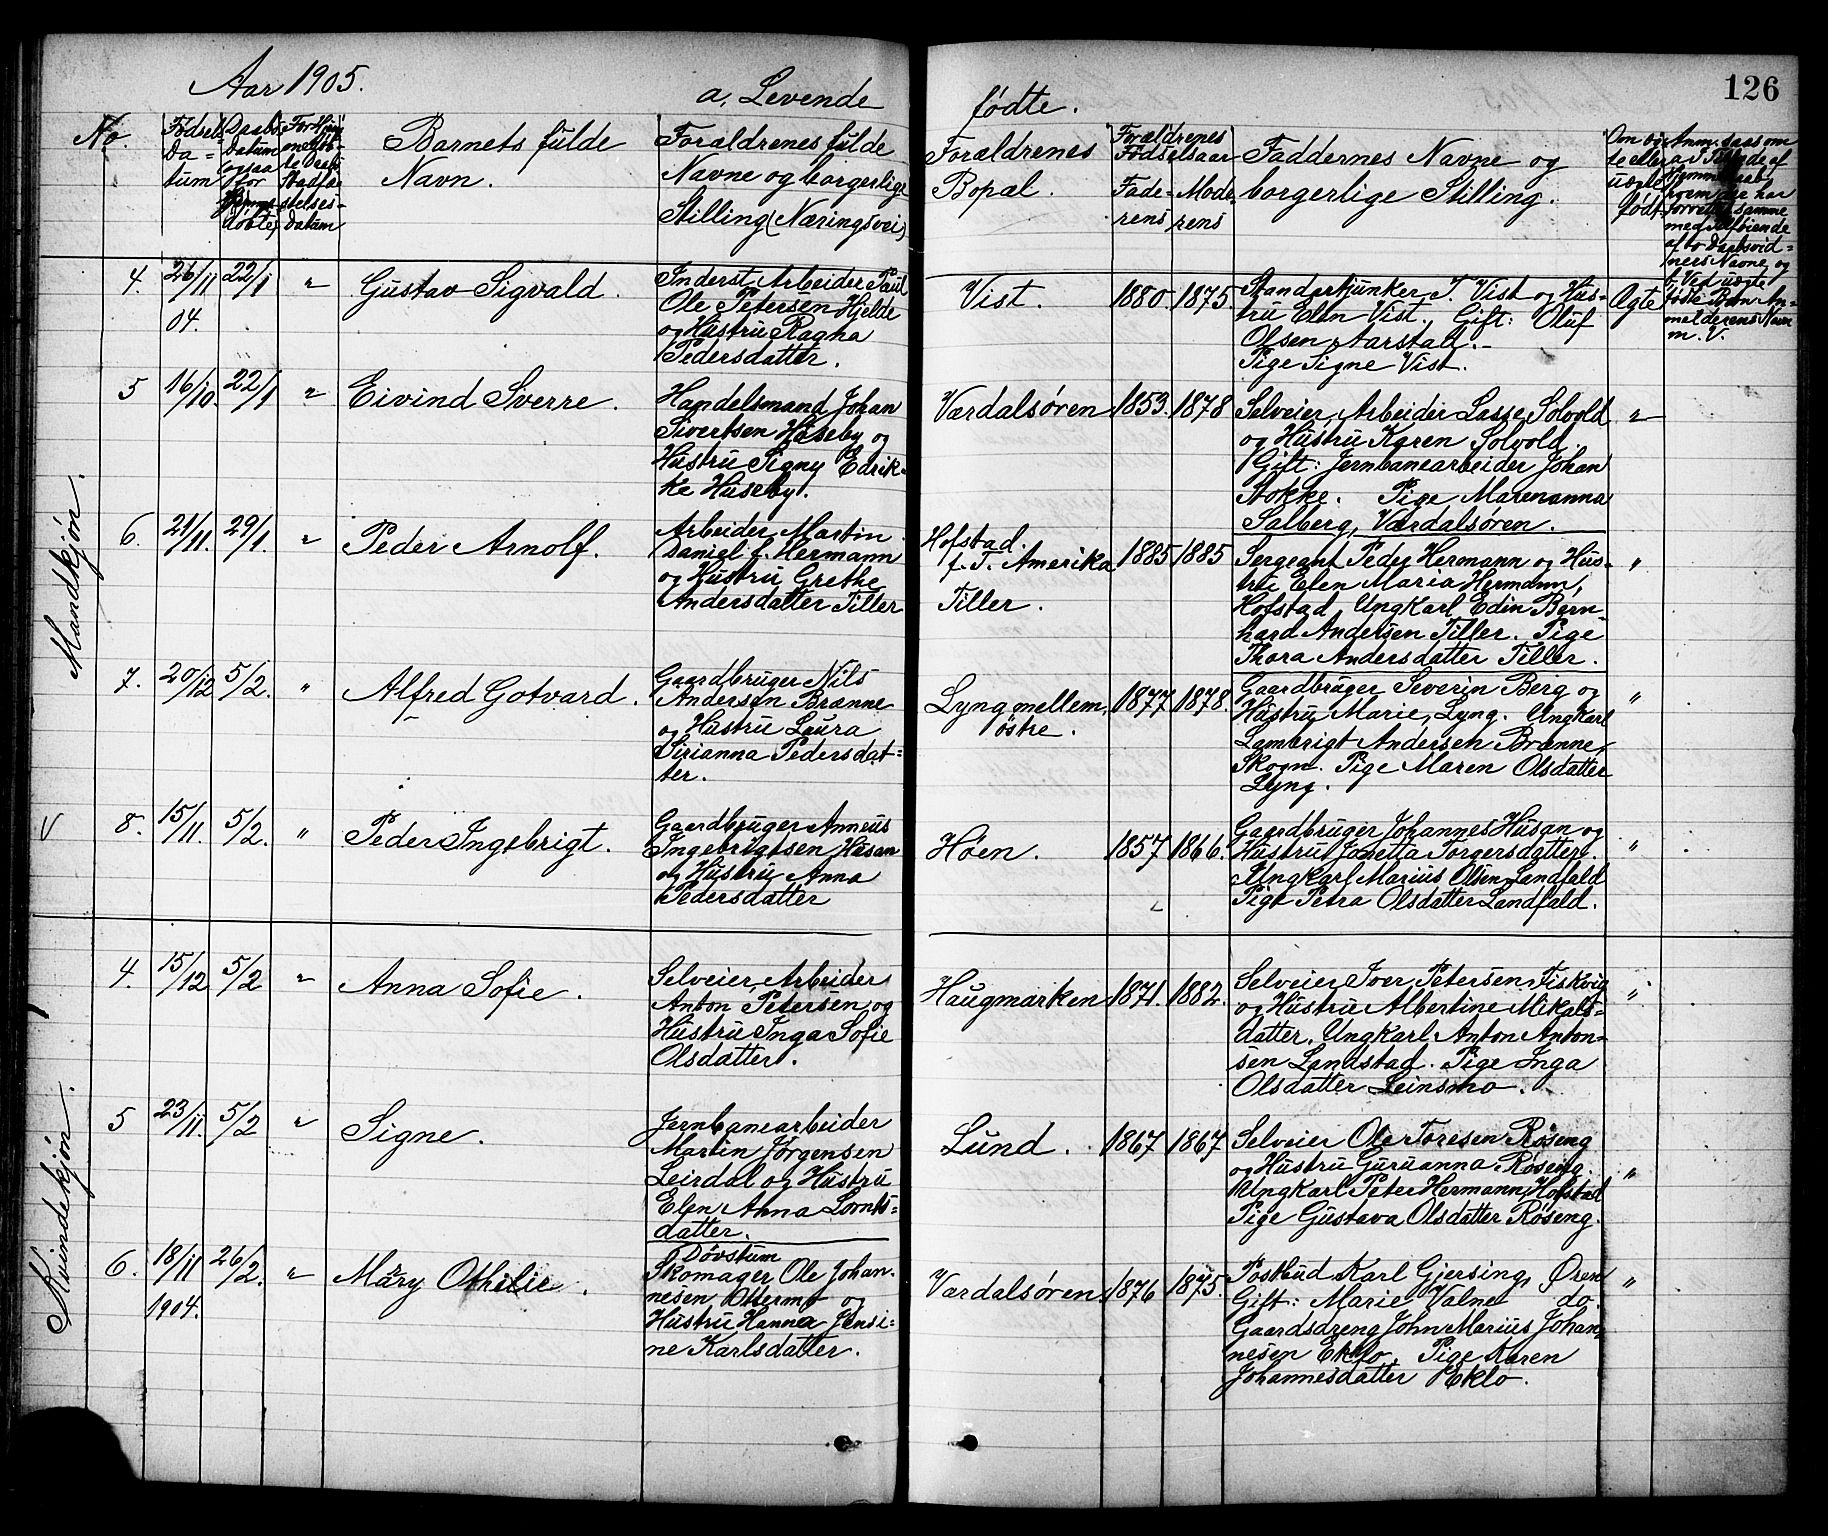 126
Aar 1905.
a, Levende
fødte.
No.
Fødsels
Da-
tum
Daabs
datum
Barnets fulde
Navn.
Forældrenes fulde
Navne og borgerlige
Stilling (Næringsvei)
Forældrenes
Bopæl.
Forældrenes
Fødselsaar
Fade-
rens
Mode
rens
Faddernes Navne og
borgerlige Stilling.
Mandkjøn.
4.
26/11
04.
22/1
"
Gustav Sigvald.
Inderst, Arbeider Paul
Ole Petersen Hjelde
og Hustru Ragna
Pedersdatter.
Vist.
1880.
1875.
Standartjunker T. Vist og Hus-
tru Elen Vist. Gift: Oluf
Olsen Aarstad.
Pige Signe Vist.
Ægte
5
16/10.
22/1
"
Eivind Sverre.
Handelsmand Johan
Sivertsen Huseby og
Hustru Signy Edrik-
ke Huseby.
Værdalsøren
1853.
1878
Selveier, Arbeider Lasse Solvold
og Hustru Karen Solvold.
Gift: Jernbanearbeider Johan
Stokke. Pige Marenanna
Salberg, Værdalsøren.
"
6.
21/11.
29/1.
"
Peder Arnolf.
Arbeider Martin
Daniel f. Hermann
og Hustru Grethe
Andersdatter Tiller
Hofstad.
f. T. Amerika
Tiller.
1885
1885
Sergeant Peder Hermann og Hus-
tru Elen Maria Hermann,
Hofstad, Ungkarl Edin Bern-
hard Andersen Tiller. Pige
Thora Andersdatter Tiller.
"
7.
20/12
5/2.
"
Alfred Gotvard.
Gaardbruger Nils
Andersen Brænne
og Hustru Laura
Sirianna Pedersdat-
ter.
Lyng mellem,
østre.
1877
1878.
Gaardbruger Severin Berg og
Hustru Marie, Lyng. Ungkarl
Lambrigt Andersen Brænne,
Skogn. Pige Maren Olsdatter
Lyng.
"
V
8.
15/11.
5/2.
"
Peder Ingebrigt.
Gaardbruger Anneus
Ingebrigtsen Husan
og Hustru Anna
Pedersdatter
Høen.
1857
1866.
Gaardbruger Johannes Husan og
Hustru Josetta Torgersdatter.
Ungkarl Marius Olsen Landfald
Pige Petra Olsdatter Landfald.
"
Kvindekjøn.
4.
15/12
5/2
"
Anna Sofie.
Selveier, Arbeider
Anton Petersen og
Hustru Inga Sofie
Olsdatter.
Haugmarken
1871.
1882.
Selveier Iver Petersen Fiskvig
og Hustru Albertine Mikals-
datter. Ungkarl Anton Anton-
sen Landstad. Pige Inga
Olsdatter Leinsmo.
"
5
23/11.
5/2
"
Signe.
Jernbanearbeider
Martin Jørgensen
Leirdal og Hustru
Elen Anna Lornts-
datter.
Lund.
1867
1867
Selveier Ole Toresen Røseng
og Hustru Guruanna Røseng.
Ungkarl Peter Hermann, Hofstad
Pige Gustava Olsdatter Røseng.
"
6.
18/11
1904.
26/2.
"
Mary Othelie.
Døvstum
Skomager Ole Johan-
nesen Ottermo og
Hustru Hanna Jensi-
ne Karlsdatter.
Værdalsøren
1876
1875.
Postbud Karl Gjersing, Øren
Gift: Marie Valne do.
Gaardsdreng John Marius Johan-
nesen Eklo. Pige Karen
Johannesdatter Eklo.
"